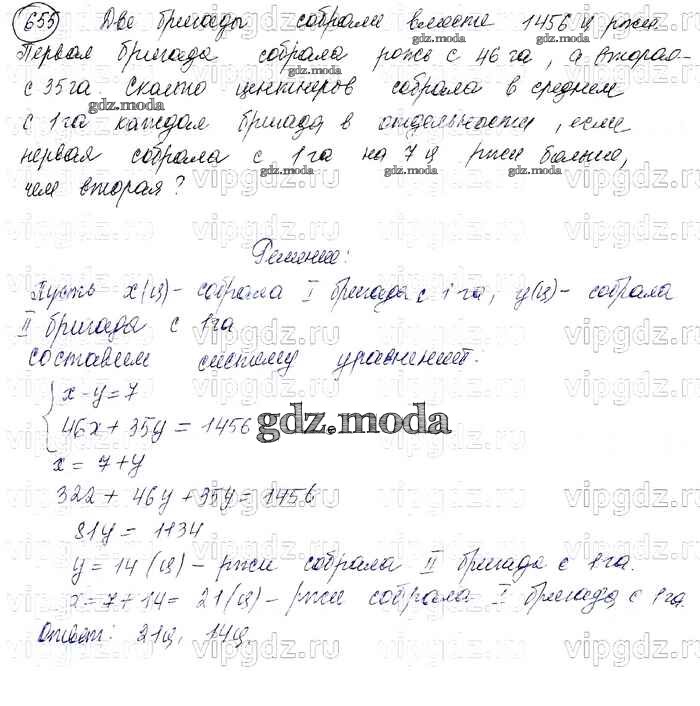 655 Две бригады собрали вместе 1456 ц ржи.
Первая бригада собрала рожь с 46 га, а вторая -
с 35 га. Сколько центнеров собрала в среднем
с 1 га каждая бригада в отдельности, если
первая собрала с 1 га на 7 ц ржи больше,
чем вторая?
Решение:
Пусть x(ц) - собрала I бригада с 1 га, y(ц) - собрала
II бригада с 1га
составим систему уравнений.
x - y = 7
46x + 35y = 1456
x = 7 + y
322 + 46y + 35y = 1456
81y = 1134
y = 14 (ц) - ржи собрала II бригада с 1 га.
x = 7 + 14 = 21(ц) - ржи собрала I бригада с 1 га.
Ответ: 21ц, 14ц.
gdz.moda
vipgdz.ru